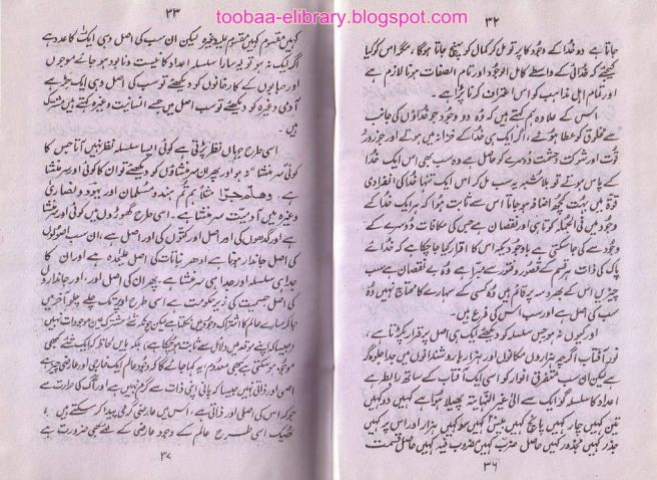 toobaa-elibrary.blogspot.com
۳۲
جاتا ہے دو خدا کے وجود کا پرتو مل کر کمال کو پہنچ جاتا ہوگا، مگر اس کو کیا
کیجئے کہ خدائی کے واسطے کامل الوجود اور تمام الصفات ہونا لازم ہے
اور تمام اہل مذاہب کو اس کا اعتراف کرنا پڑا ہے۔
اس کے علاوہ ہم کہتے ہیں کہ وہ دو وجود جو خداؤں کی جانب
سے مخلوق کو عطا ہوئے، اگر ایک ہی خدا کے خزانہ میں ہوتے اور جو زور و
قوت اور شرکت حشمت دوسرے کو حاصل ہے وہ سب بھی اس ایک خدا
کے پاس ہوتے تو بلاشبہ یہ سب مل کر اس ایک تنہا خدا کی انفرادی
قوت میں بہت کچھ اضافہ ہو جاتا اس سے ثابت ہوا کہ ہر ایک خدا کے
وجود میں فی الجملہ کوتاہی اور نقصان ہے جس کی مکافات دوسرے کے
وجود سے کی جا سکتی ہے باوجود یکہ اس کا اقرار کیا جا چکا ہے کہ خدائے
پاک کی ذات ہر قسم کے قصور و فتور سے مبرا ہے وہ بے نقصان ہے سب
چیزیں اس کے بھروسہ پر قائم ہیں وہ کسی کے سہارے کا محتاج نہیں وہ
سب کی اصل ہے اور سب اس کی فرع ہیں۔
اور کیوں نہ ہو جس سلسلہ کو دیکھئے ایک ہی اصل پر قرار پکڑتا ہے،
نور آفتاب اگرچہ ہزاروں مکانوں اور ہزارہا روشندانوں میں جدا جلوہ گر
ہے لیکن ان سب متفرق انوار کو اسی ایک آفتاب کے ساتھ رابطہ ہے
اعداد کا سلسلہ کو ایک سے الی غیر النہایتہ پھیلا ہوا ہے کہیں دو کہیں
تین کہیں چار کہیں پانچ کہیں بیس کہیں سو کہیں ہزار اور اس پر کہیں
جذر کہیں مجذور کہیں حاصل ضرب کہیں مضروب فیہ کہیں حاصل قسمت
۳۶
۳۳
کہیں مقسوم کہیں مقسوم علیہ وغیرہ لیکن ان سب کی اصل وہی ایک کا عدد ہے
اگر ایک نہ ہو تو یہ سارا سلسلہ اعداد کا نیست و نابود ہو جائے موجوں
اور حبابوں کے کارخانوں کو دیکھئے تو سب کی اصل وہی ایک بڑ ہے
آدمی وغیرہ کو دیکھئے تو سب اصل میں جسے انسانیت وغیرہ کہتے ہیں شریک
ہیں۔
اسی طرح جہاں نظر پڑتی ہے کوئی ایسا سلسلہ نظر نہیں آتا جس کا
کوئی سر منشا نہ ہو اور پھر ان سر منشاؤں کو دیکھئے تو ان کا کوئی اور سر منشا
ہے۔ وھلم جرا ہم تم ہندو مسلمان اور یہود و نصاریٰ
وغیرہ میں آدمیت سر منشا ہے۔ اسی طرح گھوڑوں میں کوئی اور سر منشا
ہے اور گدھوں کی اور اصل اور کتوں کی اور اصل ہے، ان سب اصولوں
کی اصل جاندار ہونا ہے ادھر نباتات کی اصل علیحدہ ہے اور ان کا
جدا ہی سلسلہ اور جدا ہی سر منشا ہے۔ پھر ان کی اصل اور، اور جانداروں
کی اصل جسمیت کی زیر حکومت ہے اسی طرح اوپر تک چلے چلو آخر میں
جا کر سارے عالم کا اشتراک وجود میں نکلتا ہے لیکن چونکہ شئے مشترک عین موجودات نہیں
اور جیسا کہ اپنے موقعہ میں دلائل سے ثابت ہو چکا ہے، بلکہ بایں لحاظ کہ ایک شئے کبھی
موجود ہو سکتی ہے کبھی معدوم یہ کہا جائے گا کہ وجود عالم ایک خارجی اور عارضی چیز ہے
اصلی اور ذاتی نہیں جیسا کہ پانی اپنی ذات سے گرم نہیں ہے اور آگ کی حرارت سے
جو کہ اس کی اصلی اور ذاتی ہے، اس میں عارضی گرمی پیدا کر سکتے ہیں،
ٹھیک اسی طرح عالم کے وجود عارضی کے لئے بھی ضرورت ہے
۳۷